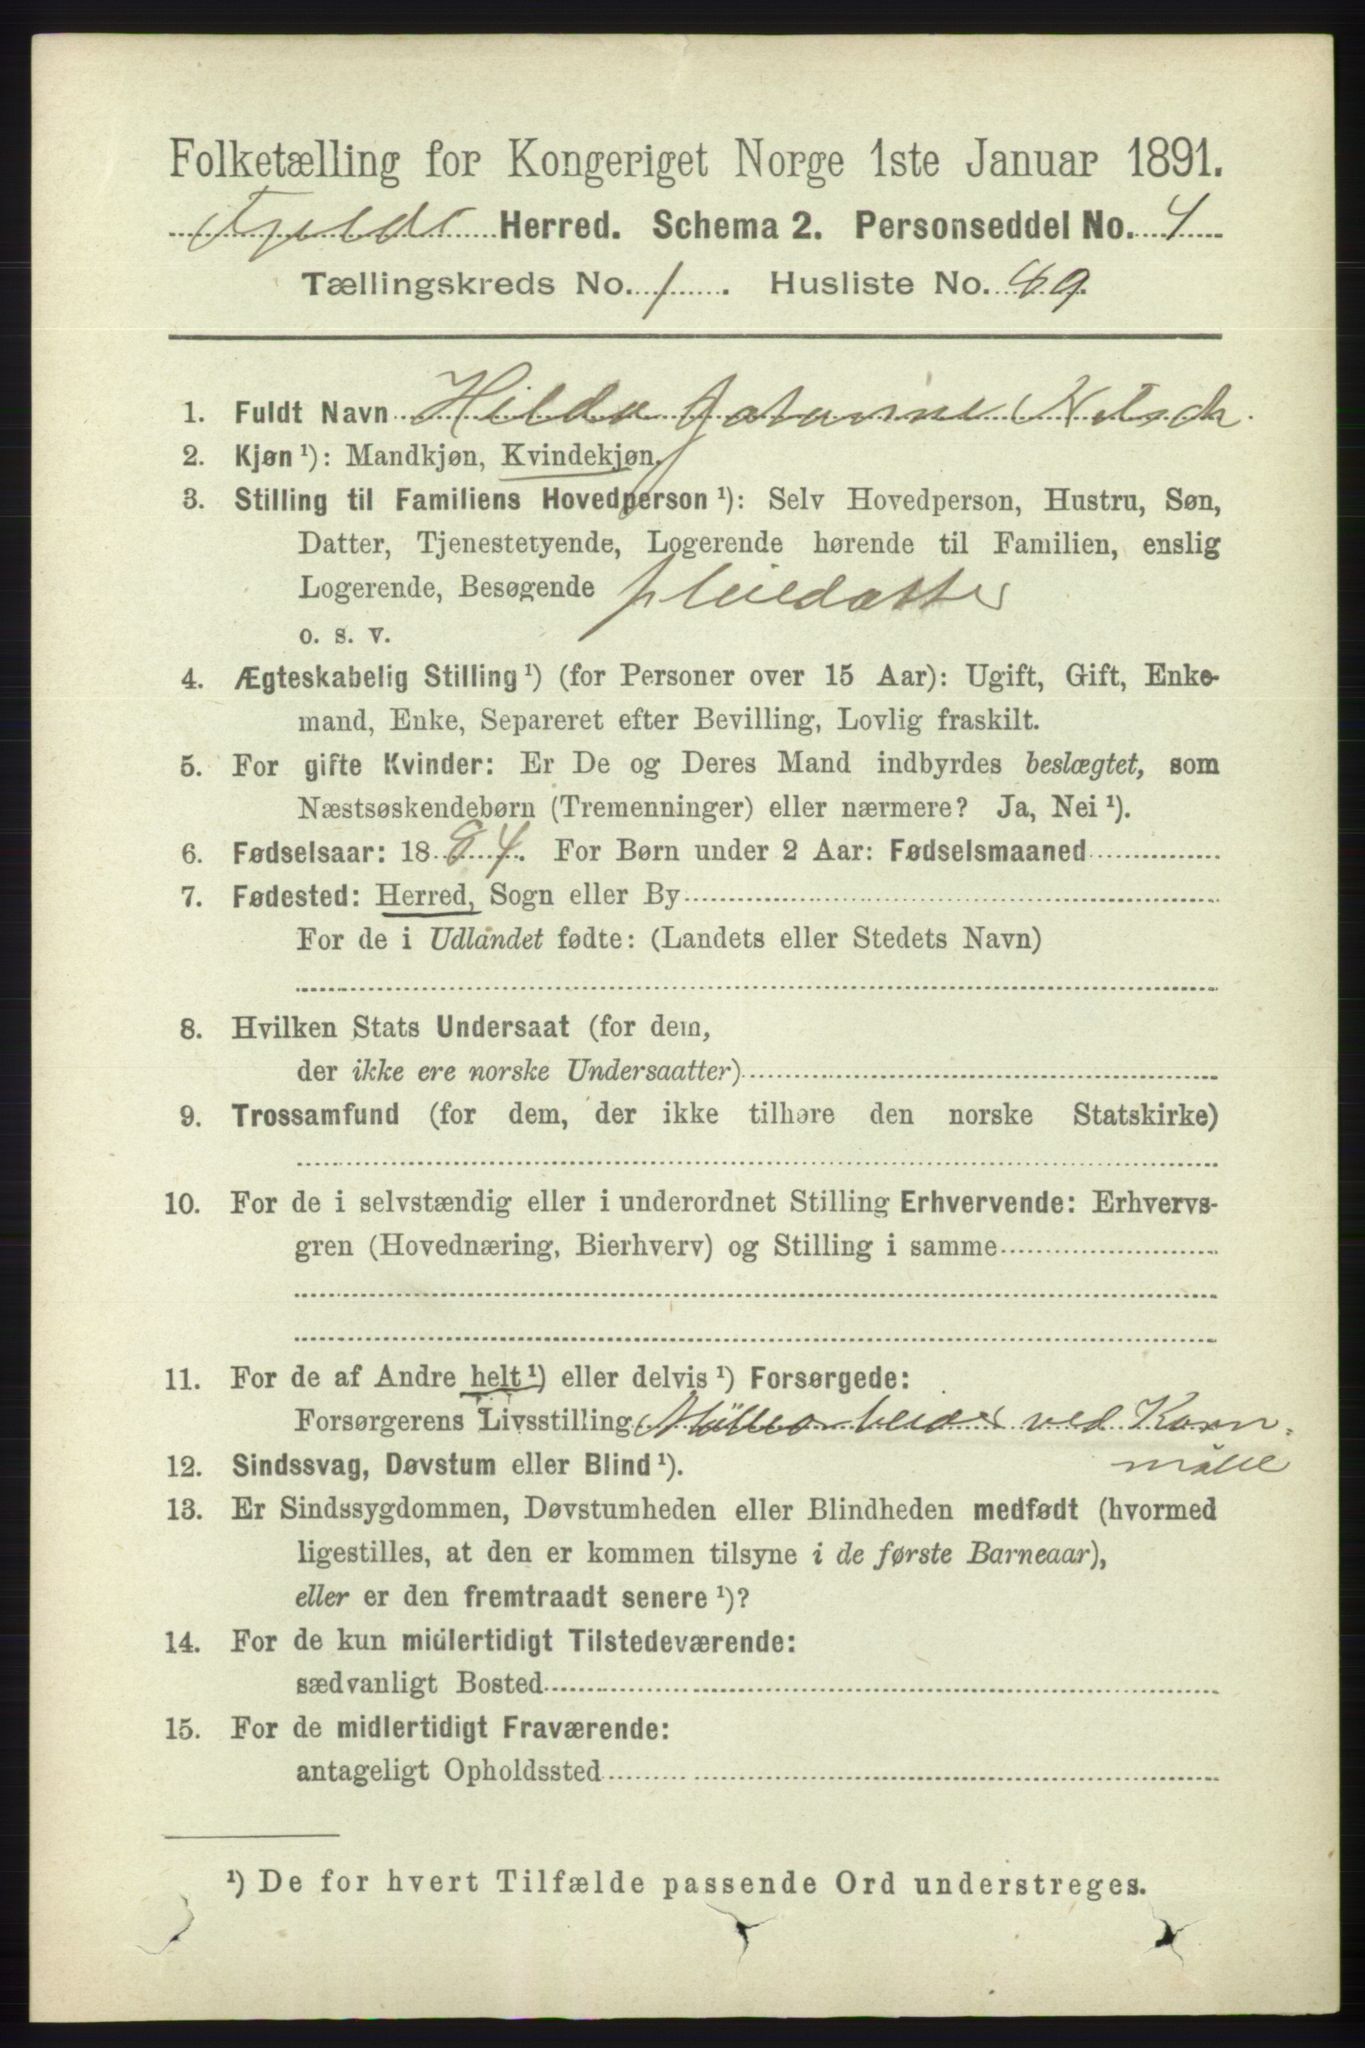 Folketælling for Kongeriget Norge 1ste Januar 1891.
Fjeld Herred. Schema 2. Personseddel No. 4
Tællingskreds No. 1. Husliste No. 69.
1. Fuldt Navn Hilda Johanne
2. Kjøn ¹): Mandkjøn, Kvindekjøn.
3. Stilling til Familiens Hovedperson ¹): Selv Hovedperson, Hustru, Søn,
Datter, Tjenestetyende, Logerende hørende til Familien, enslig
Logerende, Besøgende pleiedatter
o. s. v.
4. Ægteskabelig Stilling ¹) (for Personer over 15 Aar): Ugift, Gift, Enke-
mand, Enke, Separeret efter Bevilling, Lovlig fraskilt.
5. For gifte Kvinder: Er De og Deres Mand indbyrdes beslægtet, som
Næstsøskendebørn (Tremenninger) eller nærmere? Ja, Nei ¹).
6. Fødselsaar: 1884. For Børn under 2 Aar: Fødselsmaaned
7. Fødested: Herred, Sogn eller By
For de i Udlandet fødte: (Landets eller Stedets Navn)
8. Hvilken Stats Undersaat (for dem,
der ikke ere norske Undersaatter)
9. Trossamfund (for dem, der ikke tilhøre den norske Statskirke)
10. For de i selvstændig eller i underordnet Stilling Erhvervende: Erhvervs-
gren (Hovednæring, Bierhverv) og Stilling i samme
11. For de af Andre helt ¹) eller delvis ¹) Forsørgede:
Forsørgerens Livsstilling Møllearbeider ved Korn-
mølle
12. Sindssvag, Døvstum eller Blind ¹).
13. Er Sindssygdommen, Døvstumheden eller Blindheden medfødt (hvormed
ligestilles, at den er kommen tilsyne i de første Barneaar),
eller er den fremtraadt senere ¹)?
14. For de kun midlertidigt Tilstedeværende:
sædvanligt Bosted
15. For de midlertidigt Fraværende:
antageligt Opholdssted
¹) De for hvert Tilfælde passende Ord understreges.